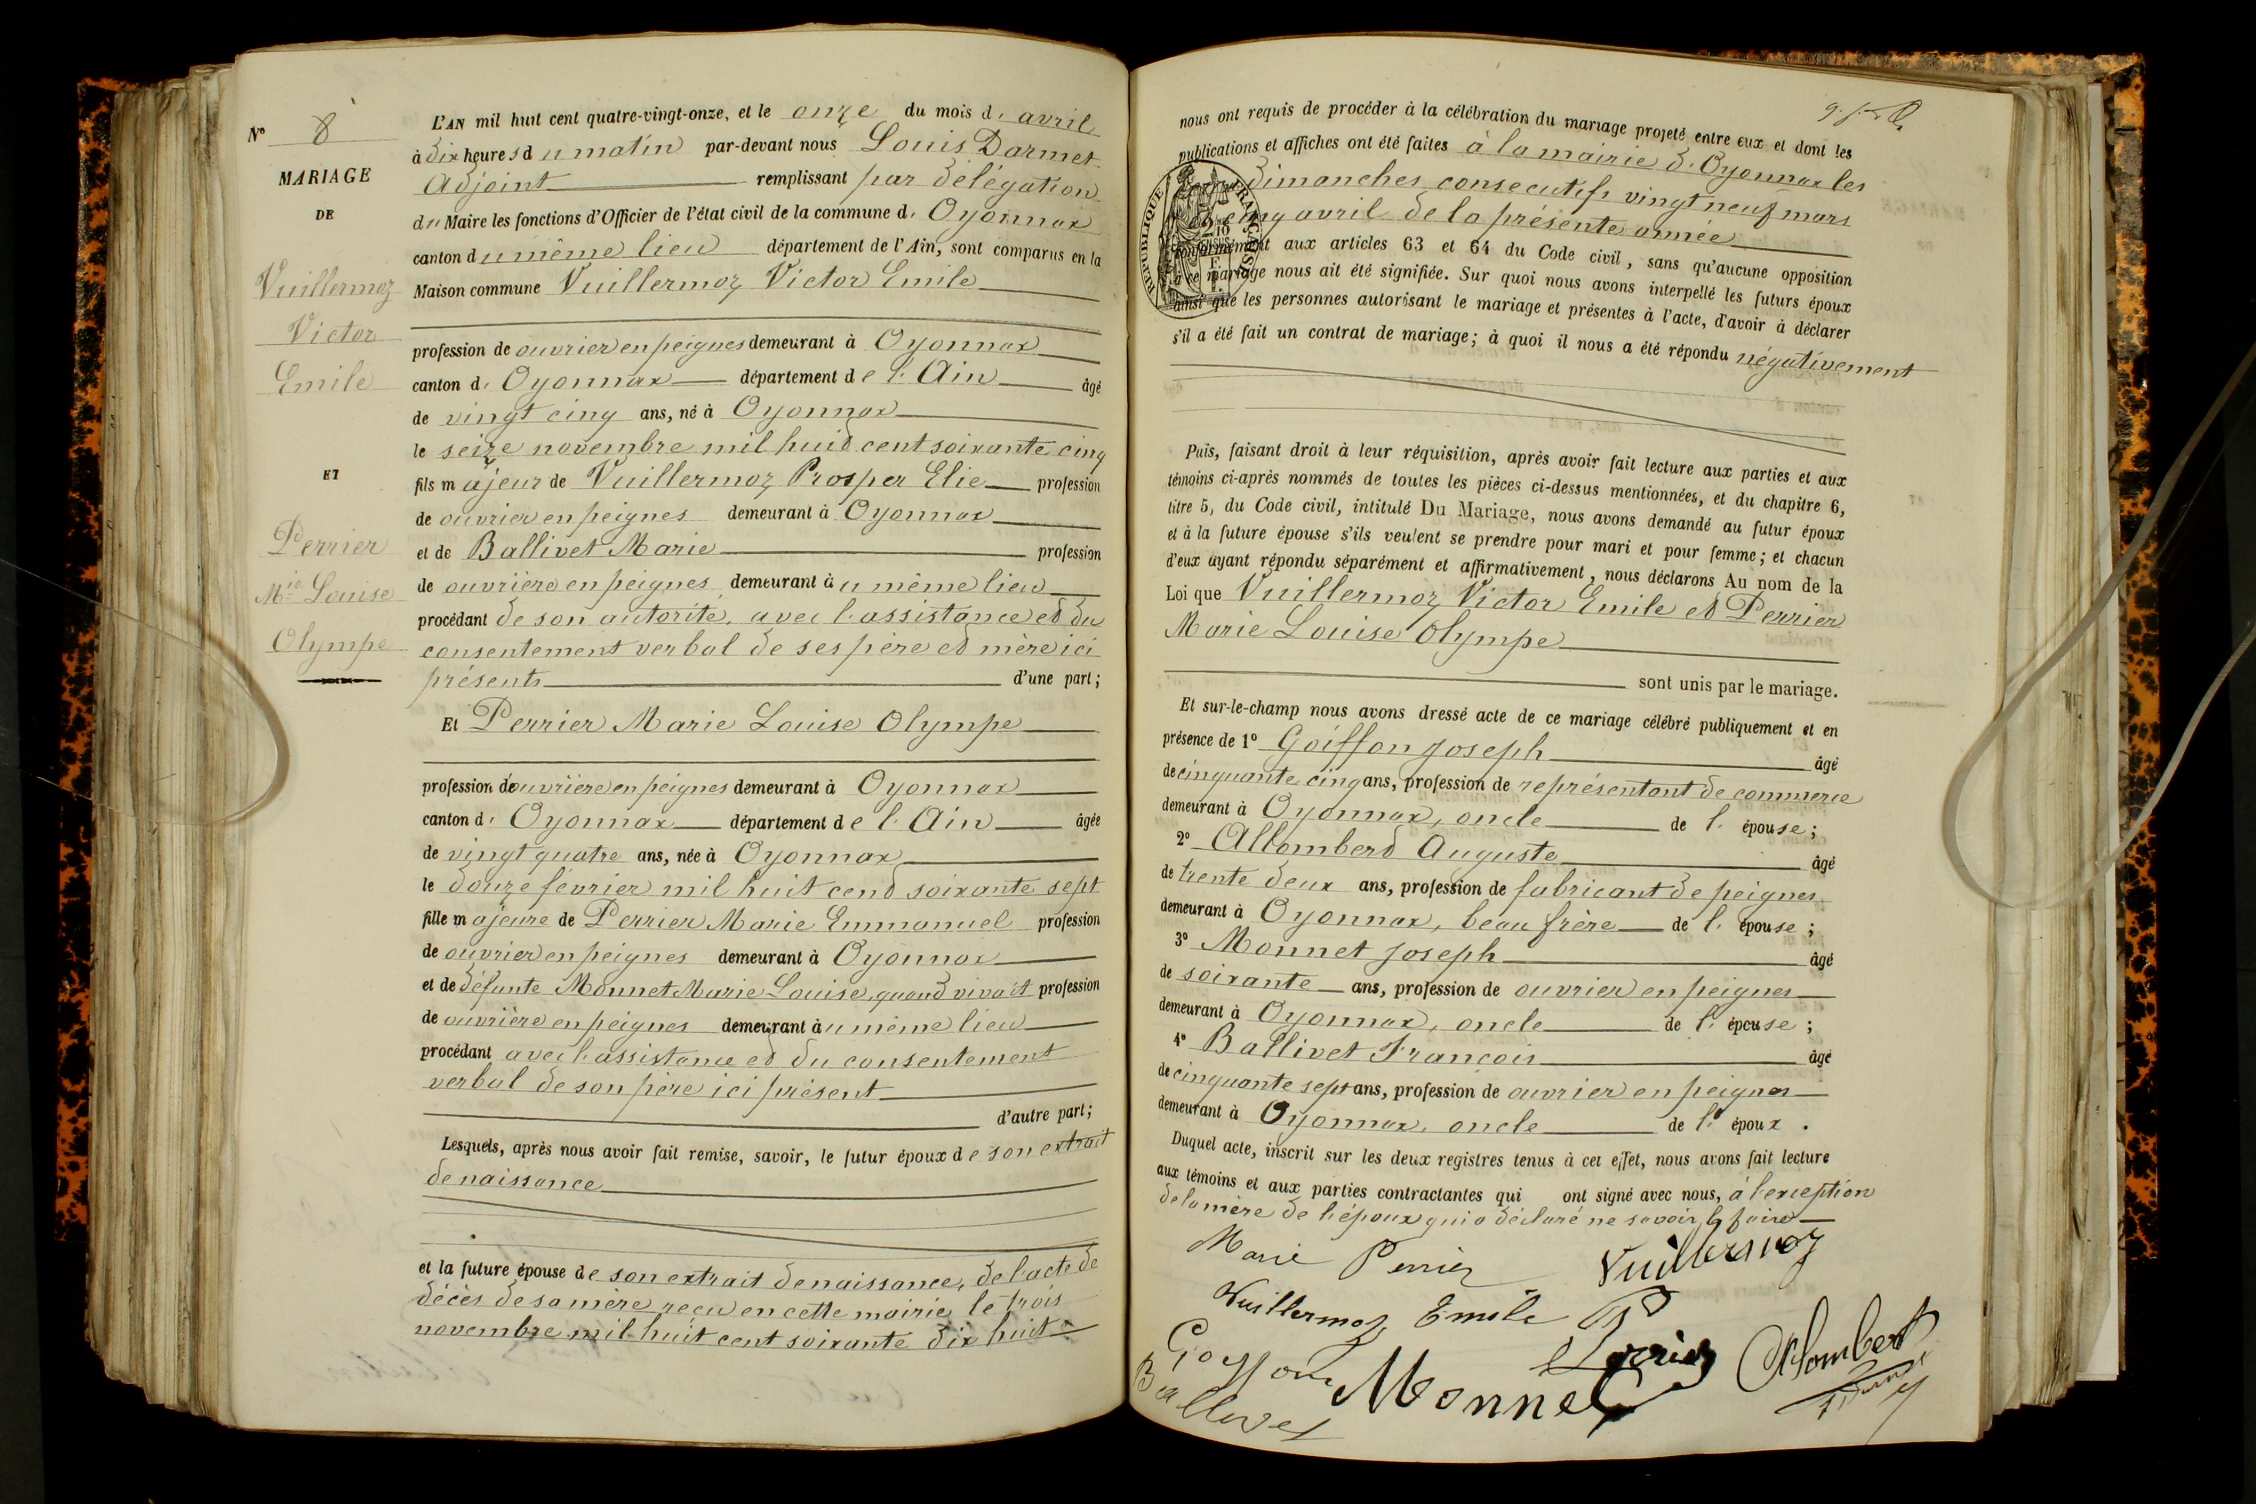 N° 8
MARIAGE
DE
Vuillermoz
Victor
Emile
ET
Perrier
Mie Louise
Olympe
L'AN mil huit cent quatre-vingt-onze, et le onze du mois d'avril
à dix heures du matin par-devant nous Louis Darmet
Adjoint remplissant par délégation
du Maire les fonctions d'Officier de l'état civil de la commune d'Oyonnax
canton du même lieu département de l'Ain, sont comparus en la
Maison commune Vuillermoz Victor Emile
profession de ouvrier en peignes demeurant à Oyonnax
canton d'Oyonnax département de l'Ain âgé
de vingt cinq ans, né à Oyonnax
le seize novembre mil huit cent soixante cinq
fils majeur de Vuillermoz Prosper Elie profession
de ouvrier en peignes demeurant à Oyonnax
et de Ballivet Marie profession
de ouvrière en peignes demeurant au même lieu
procédant de son autorité, avec l'assistance et du
consentement verbal de ses père et mère ici
présents d'une part;
Et Perrier Marie Louise Olympe
profession d'ouvrière en peignes demeurant à Oyonnax
canton d'Oyonnax département de l'Ain âgée
de vingt quatre ans, née à Oyonnax
le douze février mil huit cent soixante sept
fille majeure de Perrier Marie Emmanuel profession
de ouvrier en peignes demeurant à Oyonnax
et de défunte Monnet Marie Louise, quand vivait profession
de ouvrière en peignes demeurant au même lieu
procédant avec l'assistance et du consentement
verbal de son père ici présent
d'autre part;
Lesquels, après nous avoir fait remise, savoir, le futur époux de son extrait
de naissance
et la future épouse de son extrait de naissance, de l'acte de
décès de sa mère reçu en cette mairie le trois
novembre mil huit cent soixante dix huit
nous ont requis de procéder à la célébration du mariage projeté entre eux et dont les
publications et affiches ont été faites à la mairie d'Oyonnax les
dimanches consecutifs vingt neuf mars
cinq avril de la présente année
conformément aux articles 63 et 64 du Code civil, sans qu'aucune opposition
à ce mariage nous ait été signifiée. Sur quoi nous avons interpellé les futurs époux
ainsi que les personnes autorisant le mariage et présentes à l'acte, d'avoir à déclarer
s'il a été fait un contrat de mariage; à quoi il nous a été répondu négativement
RÉPUBLIQUE FRANÇAISE
Puis, faisant droit à leur réquisition, après avoir fait lecture aux parties et aux
témoins ci-après nommés de toutes les pièces ci-dessus mentionnées, et du chapitre 6,
titre 5, du Code civil, intitulé Du Mariage, nous avons demandé au futur époux
et à la future épouse s'ils veulent se prendre pour mari et pour femme; et chacun
d'eux ayant répondu séparément et affirmativement, nous déclarons Au nom de la
Loi que Vuillermoz Victor Emile et Perrier
Marie Louise Olympe
sont unis par le mariage.
Et sur-le-champ nous avons dressé acte de ce mariage célébré publiquement et en
présence de 1° Goiffon Joseph âgé
de cinquante cinq ans, profession de représentant de commerce
demeurant à Oyonnax, oncle de l'épouse;
2° Allombert Auguste âgé
de trente deux ans, profession de fabricant de peignes
demeurant à Oyonnax, beau frère de l'épouse;
3° Monnet Joseph âgé
de soixante ans, profession de ouvrier en peignes
demeurant à Oyonnax, oncle de l'épouse;
4° Ballivet François âgé
de cinquante sept ans, profession de ouvrier en peignes
demeurant à Oyonnax, oncle de l'époux.
Duquel acte, inscrit sur les deux registres tenus à cet effet, nous avons fait lecture
aux témoins et aux parties contractantes qui ont signé avec nous, à l'exception
de la mère de l'époux qui a déclaré ne savoir le faire
Marie Perrier Vuillermoz
Vuillermoz Emile
Perrier
Goiffon Monnet
Ballivet